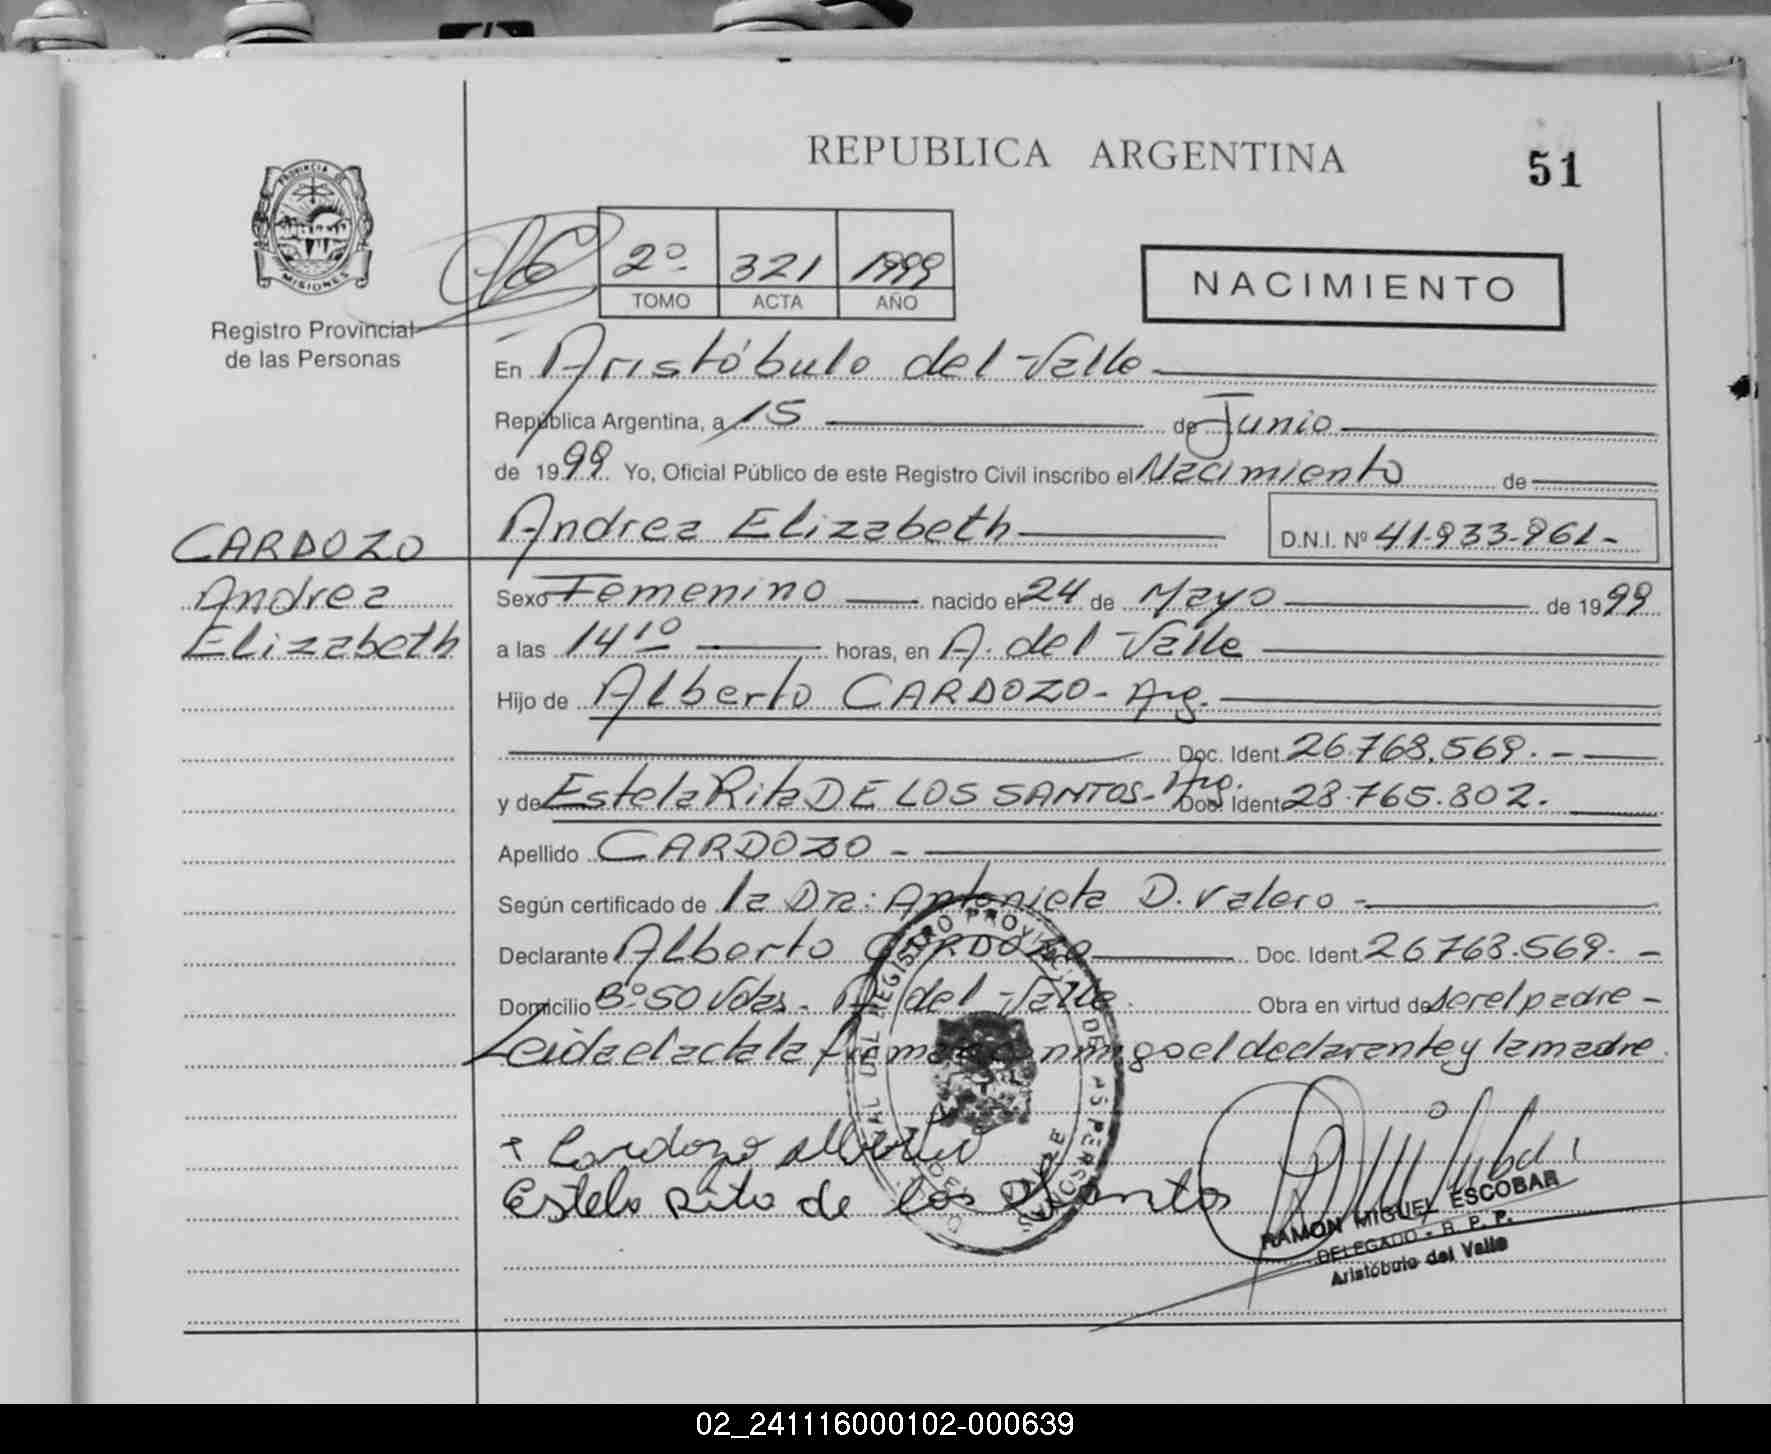 REPUBLICA ARGENTINA
51
PROVINCIA DE
MISIONES
Registro Provincial
de las Personas
2º 321 1999
TOMO ACTA AÑO
NACIMIENTO
En Aristóbulo del Valle
República Argentina, a 15 de Junio
de 1999 Yo, Oficial Público de este Registro Civil inscribo el Nacimiento de
Andrea Elizabeth D.N.I. Nº 41.933.961.-
CARDOZO
Andrea
Elizabeth
Sexo Femenino nacido el 24 de Mayo de 1999
a las 14 10 horas, en A. del Valle
Hijo de Alberto CARDOZO - Arg.
Doc. Ident. 26.768.569.-
y de Estela Rita DE LOS SANTOS - Arg. Doc. Ident. 28.765.802.
Apellido CARDOZO -
Según certificado de la Dra: Antonieta D. Valero -
Declarante Alberto CARDOZO Doc. Ident. 26.768.569. -
Domicilio Bº 50 Vdas. - A. del Valle. Obra en virtud de ser el padre -
Leida el acta la firman conmigo el declarante y la madre.
+ Cardozo Alberto
Estela Rita de los Santos
RAMON MIGUEL ESCOBAR
DELEGADO - R. P. P.
Aristóbulo del Valle
02_241116000102-000639